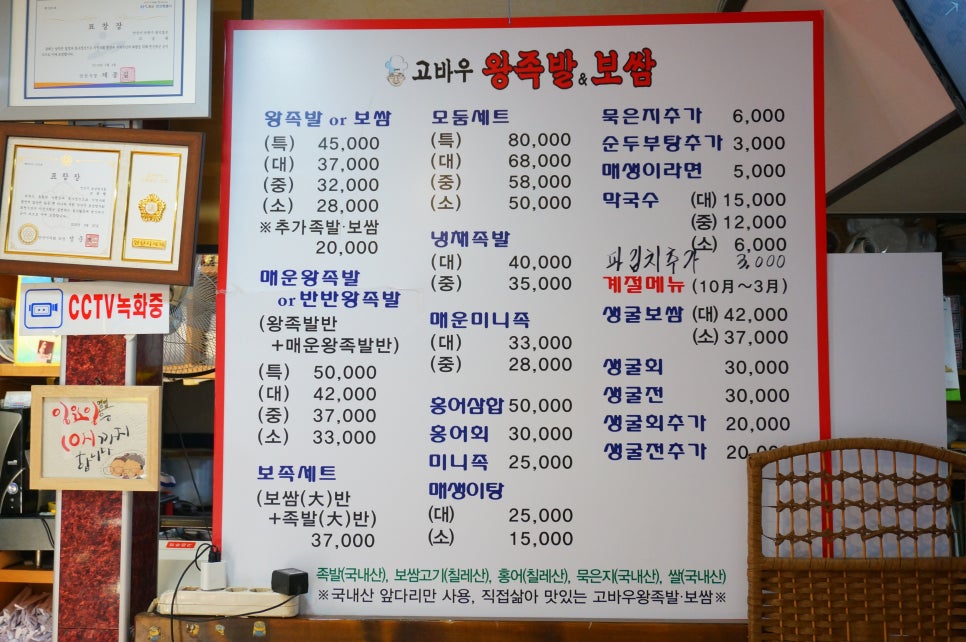 표창장
표창장
CCTV녹화중
일요일은
10시까지
합니다
고바우 왕족발&보쌈
왕족발 or 보쌈
(특) 45,000
(대) 37,000
(중) 32,000
(소) 28,000
※추가족발·보쌈
20,000
매운왕족발
or반반왕족발
(왕족발반
+매운왕족발반)
(특) 50,000
(대) 42,000
(중) 37,000
(소) 33,000
보족세트
(보쌈(大)반
+족발(大)반)
37,000
모둠세트
(특) 80,000
(대) 68,000
(중) 58,000
(소) 50,000
냉채족발
(대) 40,000
(중) 35,000
매운미니족
(대) 33,000
(중) 28,000
홍어삼합 50,000
홍어회 30,000
미니족 25,000
매생이탕
(대) 25,000
(소) 15,000
묵은지추가 6,000
순두부탕추가 3,000
매생이라면 5,000
막국수 (대) 15,000
(중) 12,000
(소) 6,000
파김치추가 3,000
계절메뉴 (10月～3月)
생굴보쌈 (대) 42,000
(소) 37,000
생굴회 30,000
생굴전 30,000
생굴회추가 20,000
생굴전추가
족발(국내산), 보쌈고기(칠레산), 홍어(칠레산), 묵은지(국내산), 쌀(국내산)
※국내산 앞다리만 사용, 직접삶아 맛있는 고바우왕족발·보쌈※